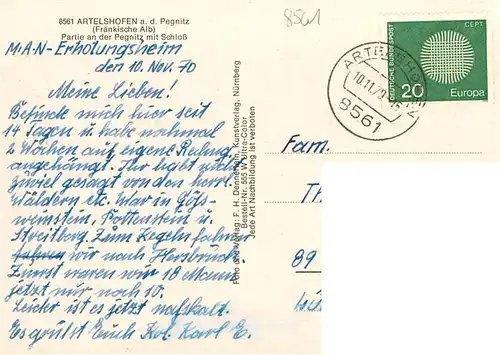 8561 ARTELSHOFEN a. d. Pegnitz
(Fränkische Alb)
Partie an der Pegnitz mit Schloß
8561
M-A-N-Erholungsheim
den 10. Nov. 70
Meine Lieben!
Befinde mich hier seit
14 Tagen u. habe nochmal
2 Wochen auf eigene Rechnung
angehängt. Ihr habt nicht
zuviel gesagt von den herrl.
Wäldern etc. War in Göss-
weinstein, Pottenstein u.
Streitberg. Zum Kegeln fahren
fahren wir nach Hersbruck.
Zuerst waren wir 18 Mann
jetzt nur noch 10.
Leider ist es jetzt naßkalt.
Es grüßt Euch Kol. Karl E.
Foto und Verlag: F. H. Dennerlein, Kunstverlag, Nürnberg
Bestell-Nr. 555 W Ultra-Color
Jede Art Nachbildung ist verboten
DEUTSCHE BUNDESPOST
CEPT
20
Europa
ARTELSHOFEN
10.11.70
8561
Fam.
Th
89